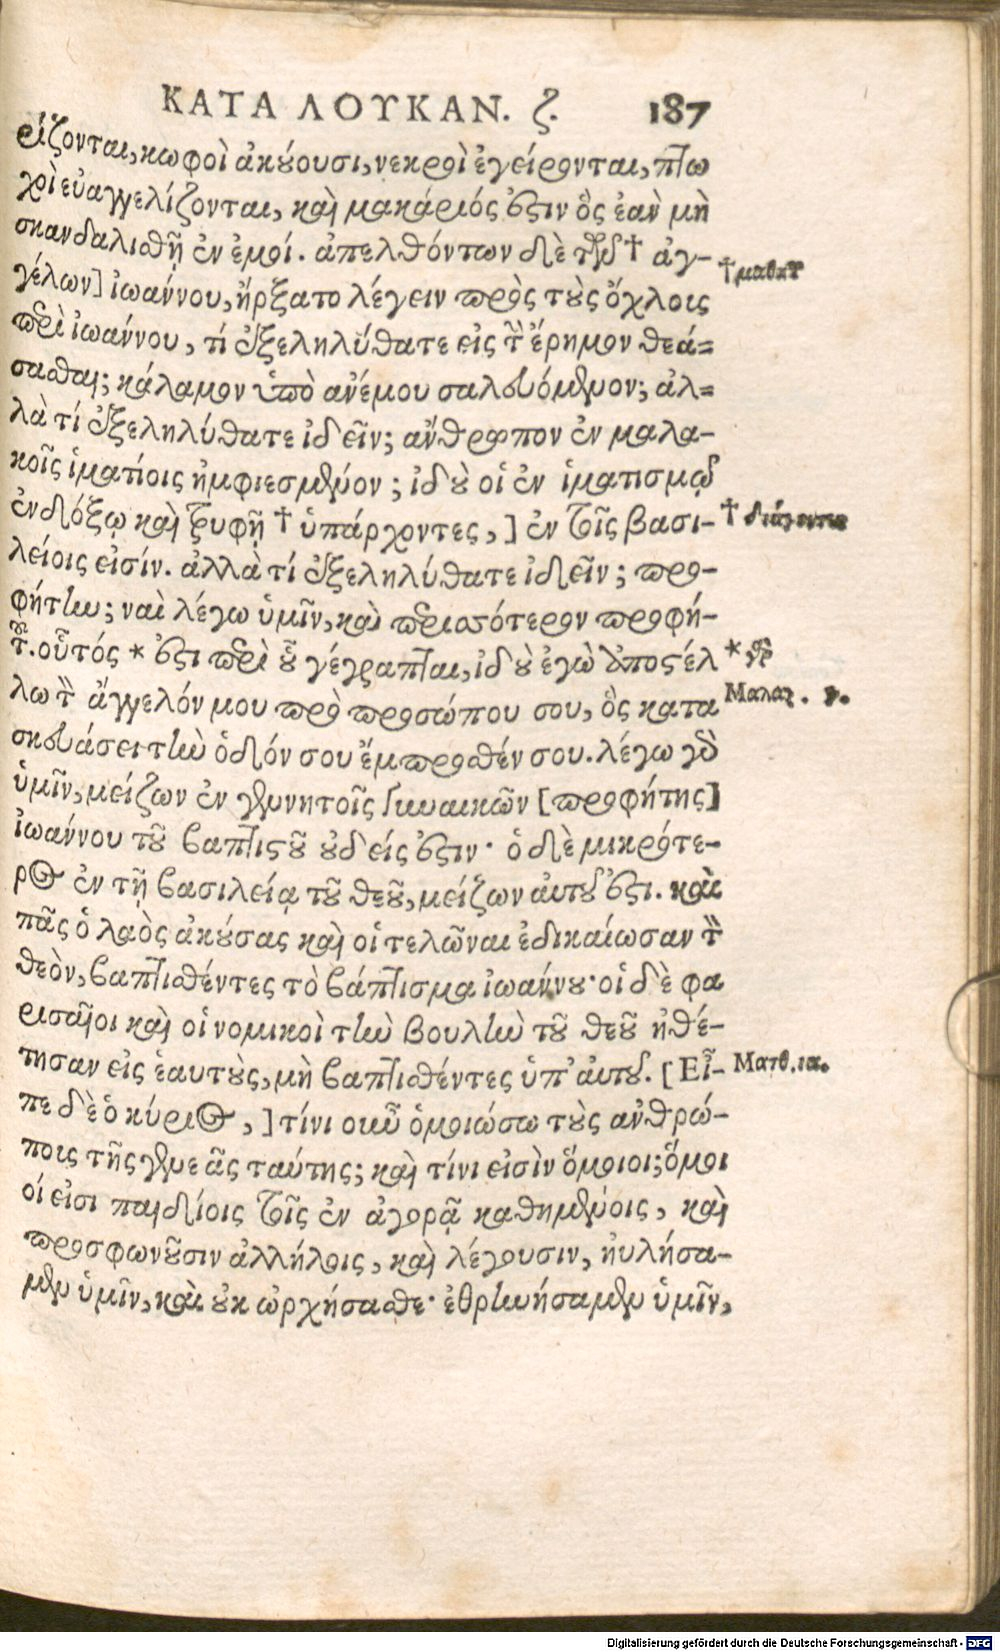 ΚΑΤΑ ΛΟΥΚΑΝ. ζ. 187
ρίζονται, κωφοὶ ἀκούουσι, νεκροὶ ἐγείρονται, πτω
χοὶ εὐαγγελίζονται, καὶ μακάριός ἐστιν ὃς ἐὰν μὴ
σκανδαλισθῇ ἐν ἐμοί. ἀπελθόντων δὲ τῶν † ἀγ-
† μαθητ
γέλων] ἰωάννου, ἤρξατο λέγειν πρὸς τοὺς ὄχλοις
περὶ ἰωάννου, τί ἐξεληλύθατε εἰς τὴν ἔρημον θεά=
σασθαι; κάλαμον ὑπὸ ἀνέμου σαλευόμενον; ἀλ=
λὰ τί ἐξεληλύθατε ἰδεῖν; ἄνθρωπον ἐν μαλα-
κοῖς ἱματίοις ἠμφιεσμένον; ἰδοὺ οἱ ἐν ἱματισμῷ
ἐνδόξῳ καὶ τρυφῇ † ὑπάρχοντες, ] ἐν τοῖς βασι-
† διάγοντες
λείοις εἰσίν. ἀλλὰ τί ἐξεληλύθατε ἰδεῖν; προ-
φήτην; ναὶ λέγω ὑμῖν, καὶ περισσότερον προφή-
τ. οὗτός * ἐστι περὶ οὗ γέγραπται, ἰδοὺ ἐγὼ ἀποστέλ
* γάρ
λω τὸν ἄγγελόν μου πρὸ προσώπου σου, ὃς κατα
Μαλαχ. γ.
σκευάσει τὴν ὁδόν σου ἔμπροσθέν σου. λέγω γὰρ
ὑμῖν, μείζων ἐν γεννητοῖς γυναικῶν [προφήτης]
ἰωάννου τοῦ βαπτιστοῦ οὐδείς ἐστιν· ὁ δὲ μικρότε-
ρος ἐν τῇ βασιλείᾳ τοῦ θεοῦ, μείζων αὐτοῦ ἐστι. καὶ
πᾶς ὁ λαὸς ἀκούσας καὶ οἱ τελῶναι ἐδικαίωσαν τὸν
θεὸν, βαπτισθέντες τὸ βάπτισμα ἰωάννου· οἱ δὲ φα
ρισαῖοι καὶ οἱ νομικοὶ τὴν βουλὴν τοῦ θεοῦ ἠθέ-
τησαν εἰς ἑαυτοὺς, μὴ βαπτισθέντες ὑπ' αὐτοῦ. [Εἶ-
Ματθ. ια.
πε δὲ ὁ κύριος, ] τίνι οὖν ὁμοιώσω τοὺς ἀνθρώ-
ποις τῆς γενεᾶς ταύτης; καὶ τίνι εἰσὶν ὅμοιοι; ὅμοι
οί εἰσι παιδίοις τοῖς ἐν ἀγορᾷ καθημένοις, καὶ
προσφωνοῦσιν ἀλλήλοις, καὶ λέγουσιν, ηὐλήσα-
μεν ὑμῖν, καὶ οὐκ ὠρχήσασθε· ἐθρηνήσαμεν ὑμῖν,
Digitalisierung gefördert durch die Deutsche Forschungsgemeinschaft - DFG